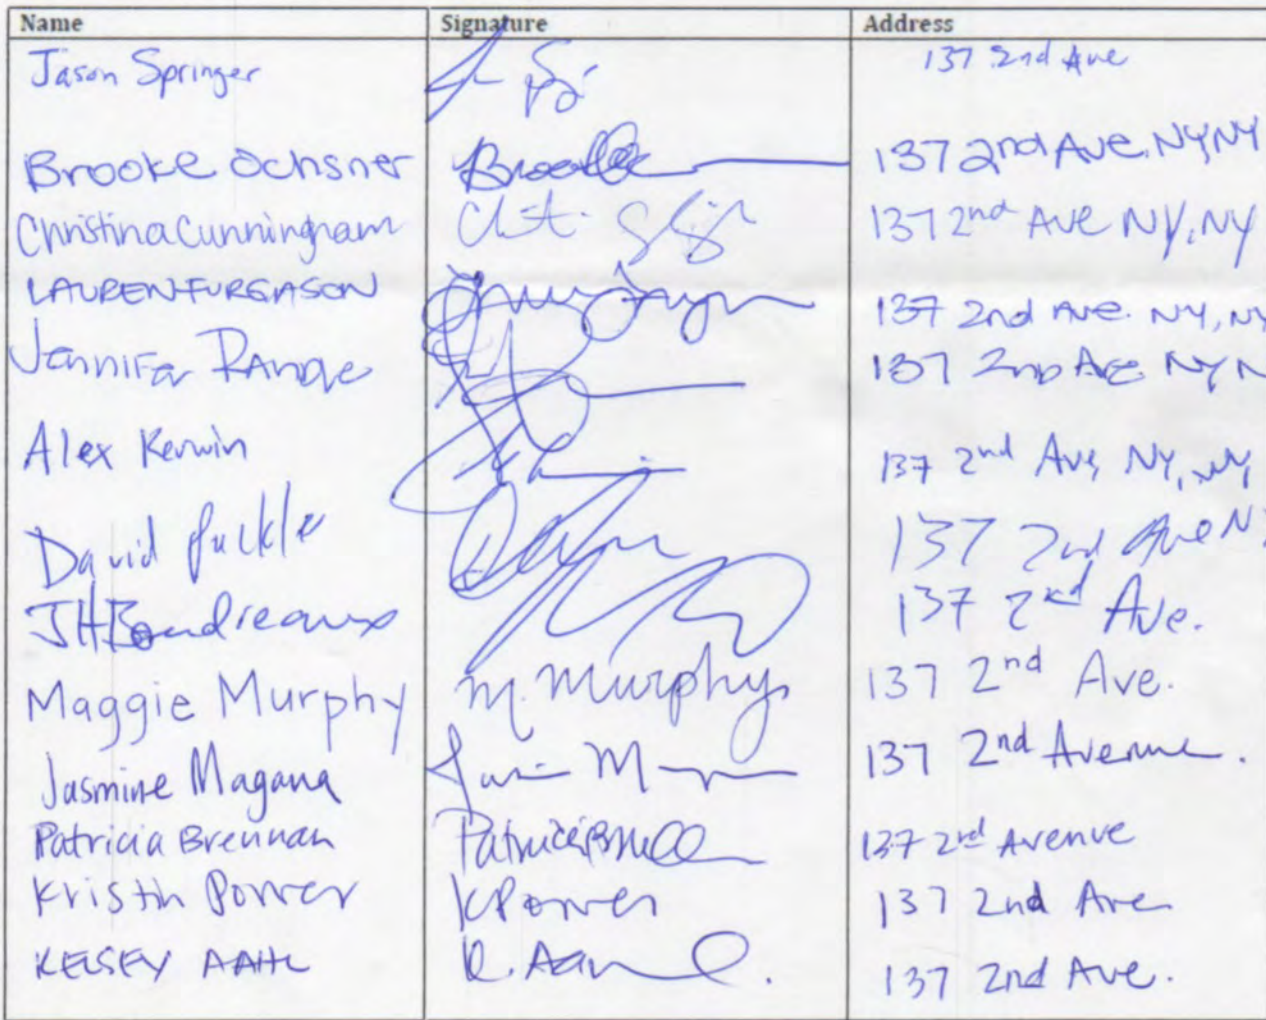 Name Signature Address
Jason Springer 137 2nd Ave
Brooke Ochsner Brooke 137 2nd Ave. NY, NY
Christina Cunningham 137 2nd Ave NY, NY
LAUREN FURGASON 137 2nd Ave. NY, NY
Jennifer Range 137 2nd Ave NY N
Alex Kerwin 137 2nd Ave, NY, NY
David 137 2nd Ave N
JHBoudreaux 137 2nd Ave.
Maggie Murphy M. Murphy 137 2nd Ave.
Jasmine Magana 137 2nd Avenue.
Patricia Brennan 137 2nd Avenue
Kristin Power KPower 137 2nd Ave
KELSEY AAHL 137 2nd Ave.